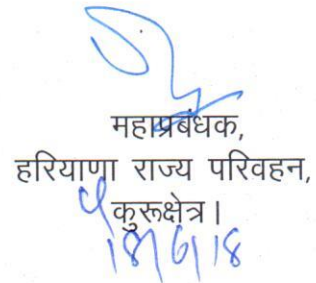 महाप्रबंधक,
हरियाणा राज्य परिवहन,
कुरूक्षेत्र।